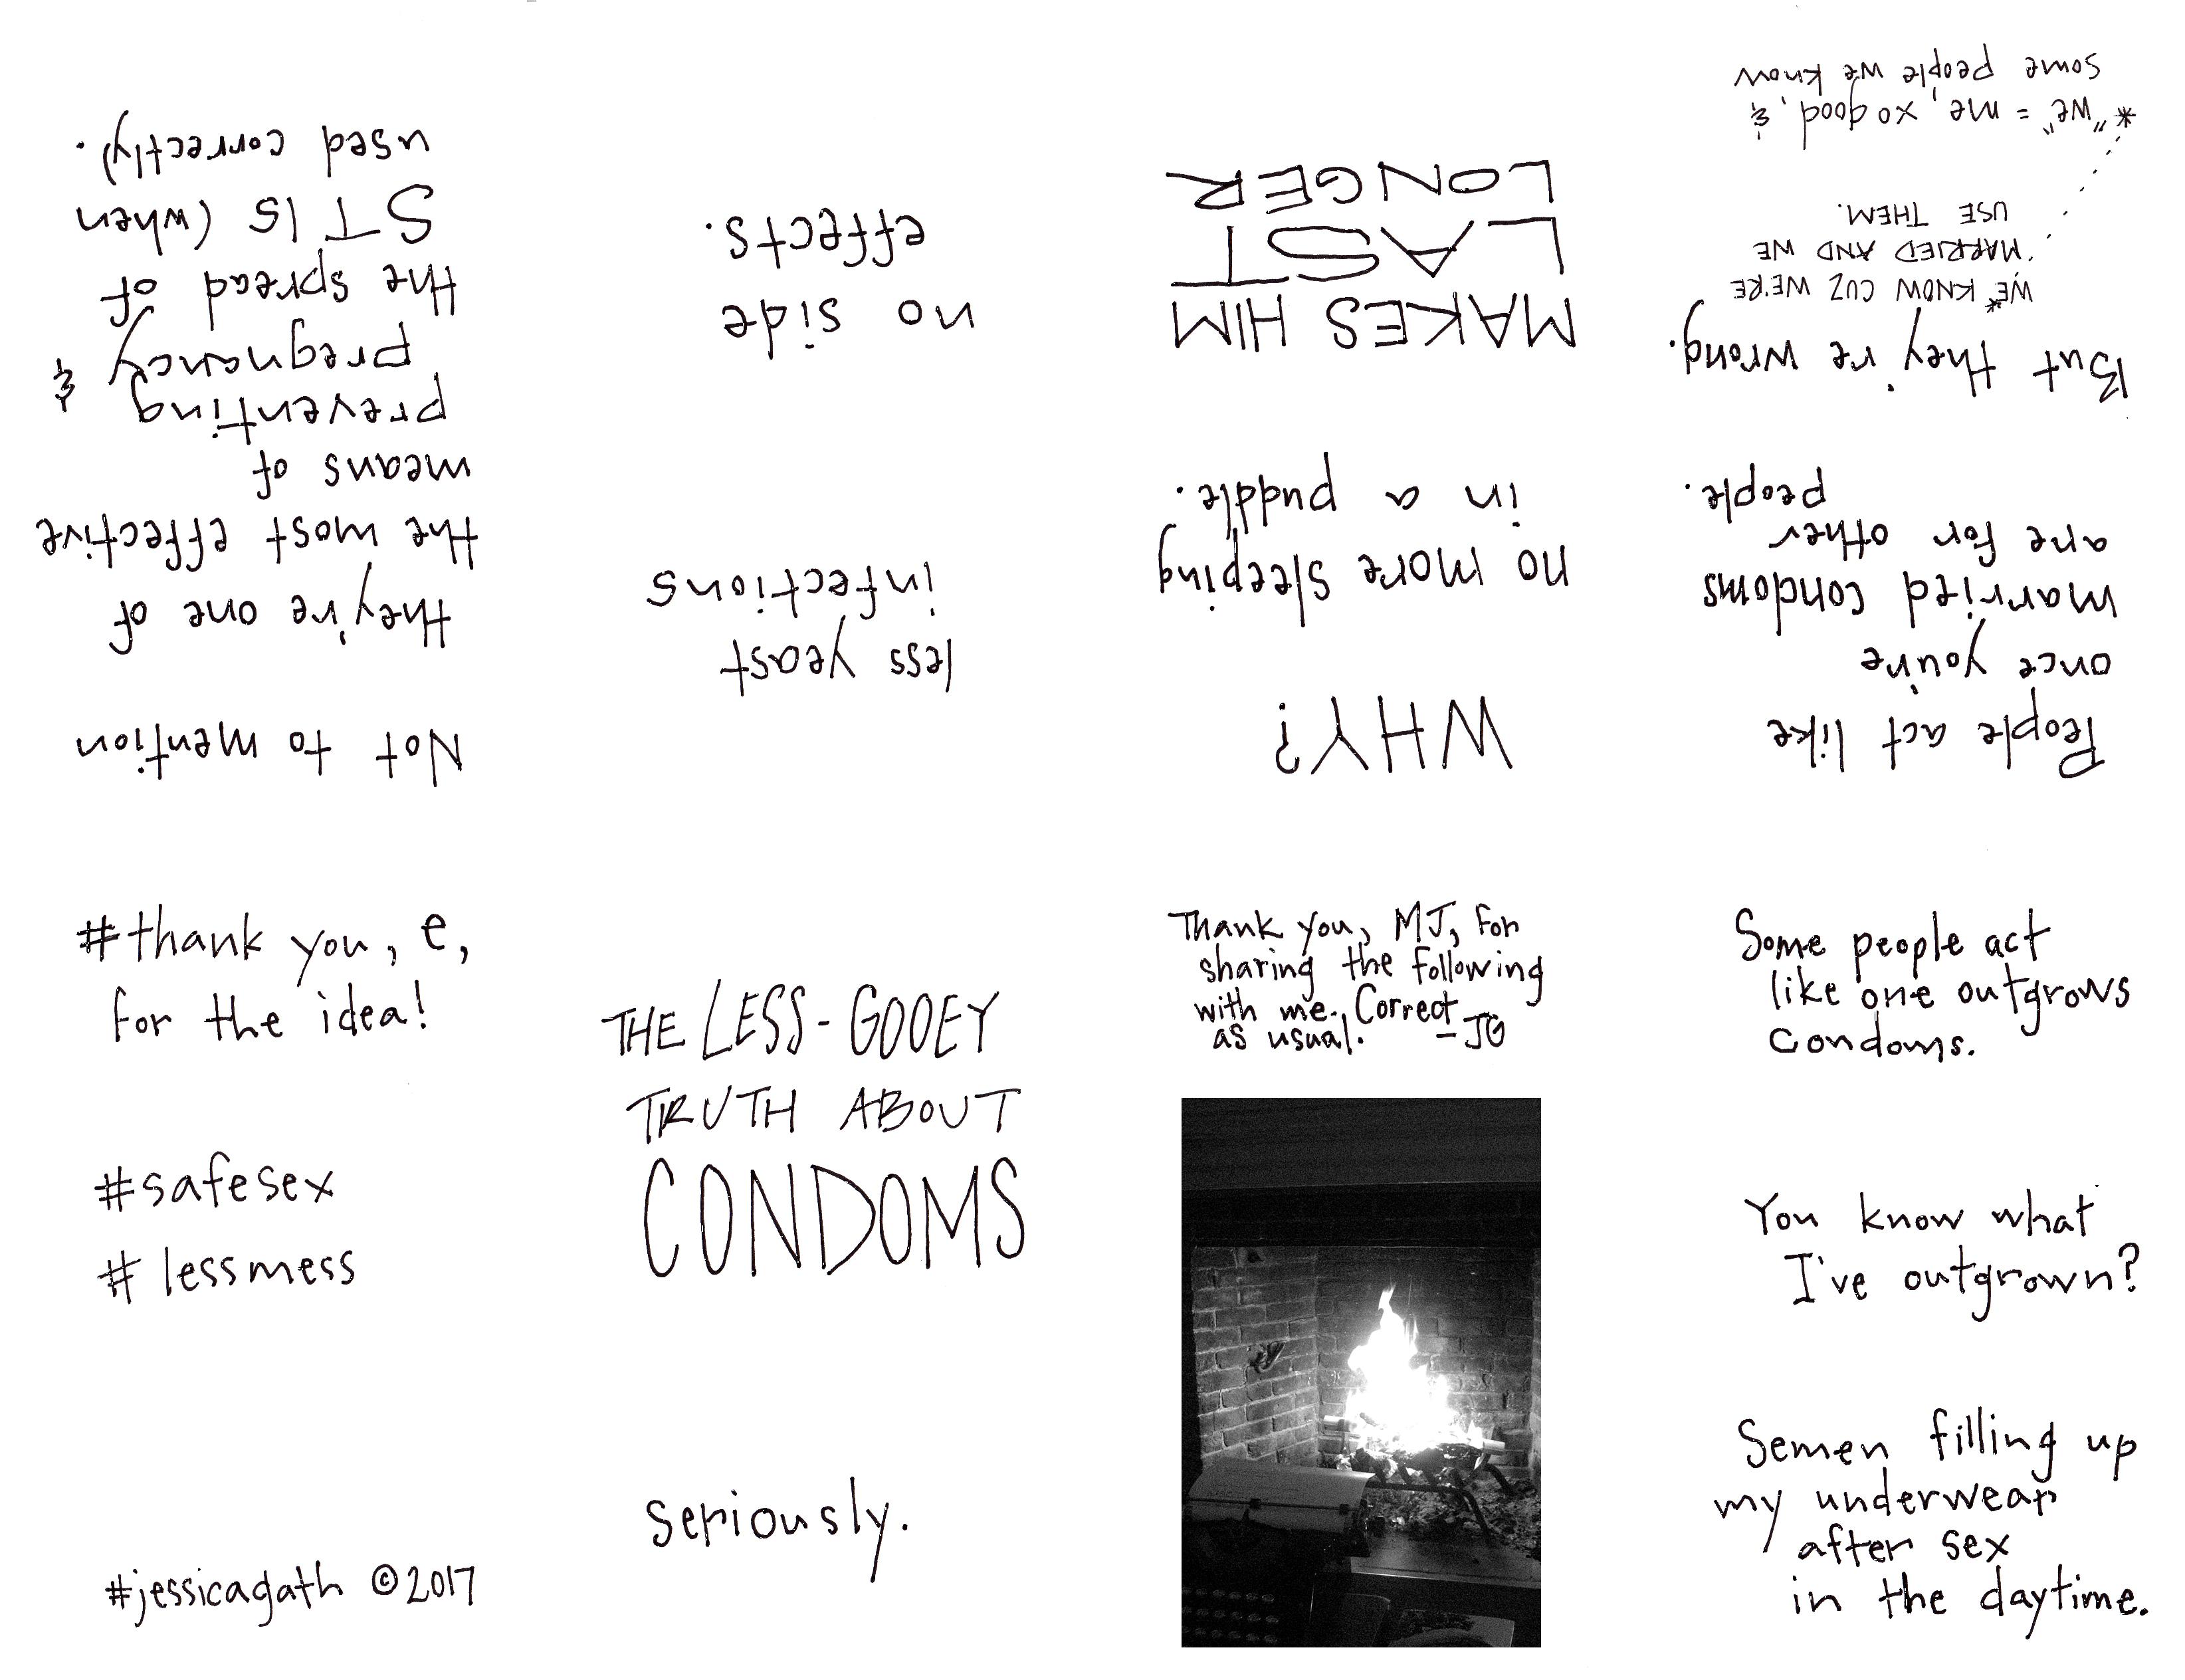 THE LESS-GOOEY
TRUTH ABOUT
CONDOMS
seriously.
Thank you, MJ, for
sharing the following
with me. Correct
as usual. – JG
Some people act
like one outgrows
condoms.
You know what
I've outgrown?
Semen filling up
my underwear
after sex
in the daytime.
People act like
once you're
married condoms
are for other
people.
But they're wrong.
WE* KNOW CUZ WE'RE
MARRIED AND WE
USE THEM.
* "we" = me, xo good, &
some people we know
WHY?
no more sleeping
in a puddle.
MAKES HIM
LAST
LONGER
less yeast
infections
no side
effects.
Not to mention
they're one of
the most effective
means of
preventing
pregnancy &
the spread of
STIS (when
used correctly).
#thank you, e,
for the idea!
#safesex
#lessmess
#jessicagath ©2017